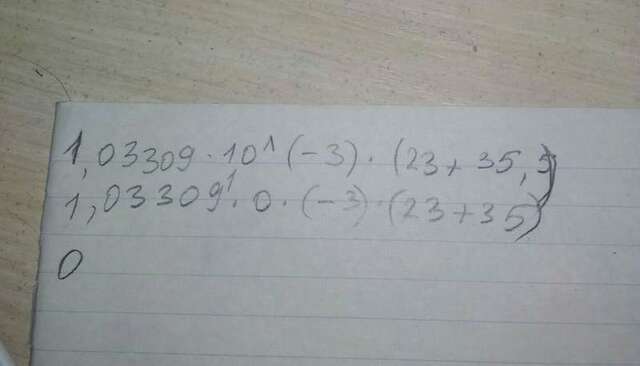 1,03309·10^(-3)·(23+35,5)
1,03309¹·0·(-3)·(23+35)
0